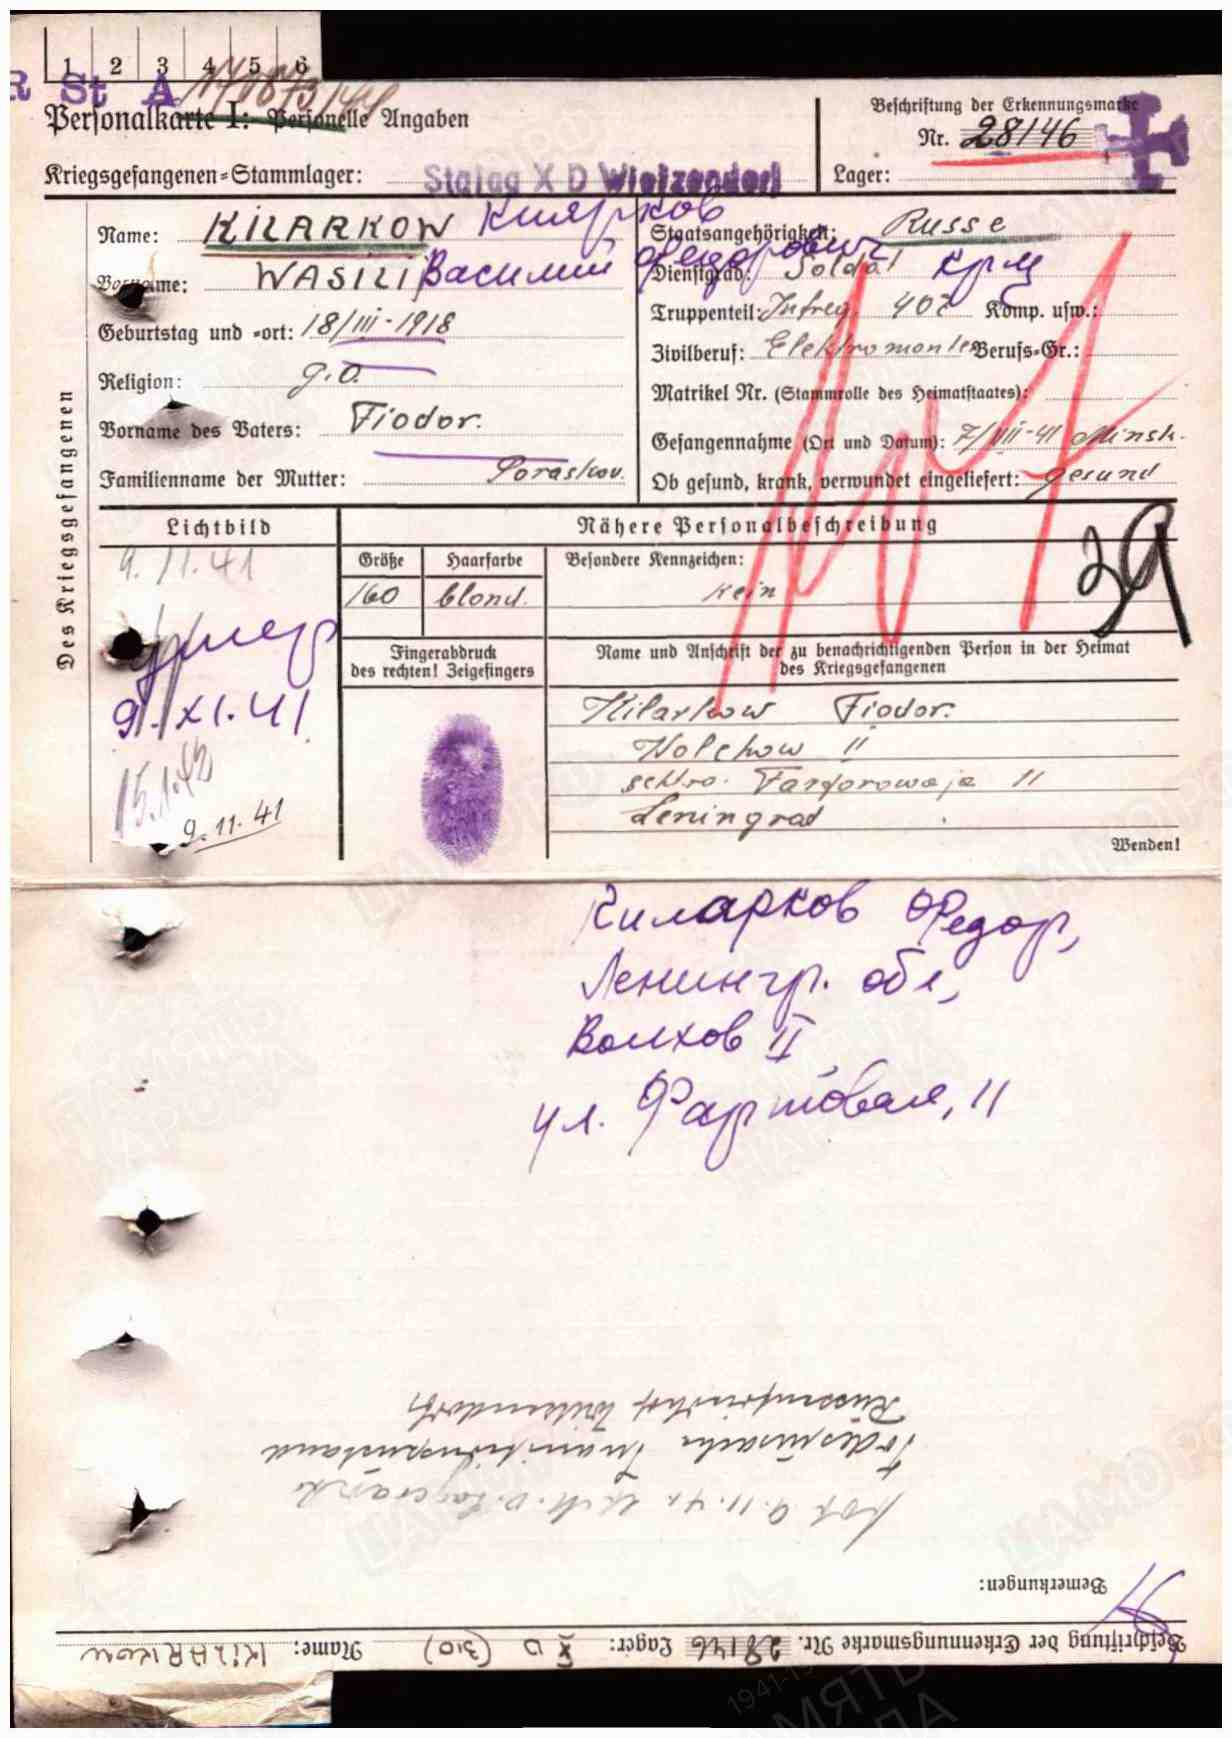 1 2 3 4 5 6
R St A
Personalkarte I: Personelle Angaben
Beschriftung der Erkennungsmarke
Nr. 28146
Kriegsgefangenen-Stammlager: Stalag X D Wietzendorf
Lager:
Des Kriegsgefangenen
Name: KILARKOW Киларков
Staatsangehörigkeit: Russe
Vorname: WASILI Василий Федорович
Dienstgrad: Soldat крц
Geburtstag und -ort: 18/III-1918
Truppenteil: 407 Komp. usw.:
Zivilberuf: Elektromonter Berufs-Gr.:
Religion: g.o.
Matrikel Nr. (Stammrolle des Heimatstaates):
Vorname des Vaters: Fiodor.
Gefangennahme (Ort und Datum): 7/VII-41 Minsk.
Familienname der Mutter: Poraskow.
Ob gesund, krank, verwundet eingeliefert: gesund
Lichtbild
Nähere Personalbeschreibung
9.11.41
Größe Haarfarbe Besondere Kennzeichen:
160 blond. kein
39
умер
9.XI.41
15.1.42
9.11.41
Fingerabdruck
des rechten! Zeigefingers
Name und Anschrift der zu benachrichtigenden Person in der Heimat
des Kriegsgefangenen
Kilarkow Fiodor.
Wolchow II
Farforowaja 11
Leningrad
Wenden!
Киларков Федор,
Ленингр. обл,
Волхов II
ул. 11
Beschriftung der Erkennungsmarke Nr. 28146 Lager: X D (310) Name: KILARKOW
Bemerkungen:
9.11.41
Todesursache
Russenfriedhof Wietzendorf